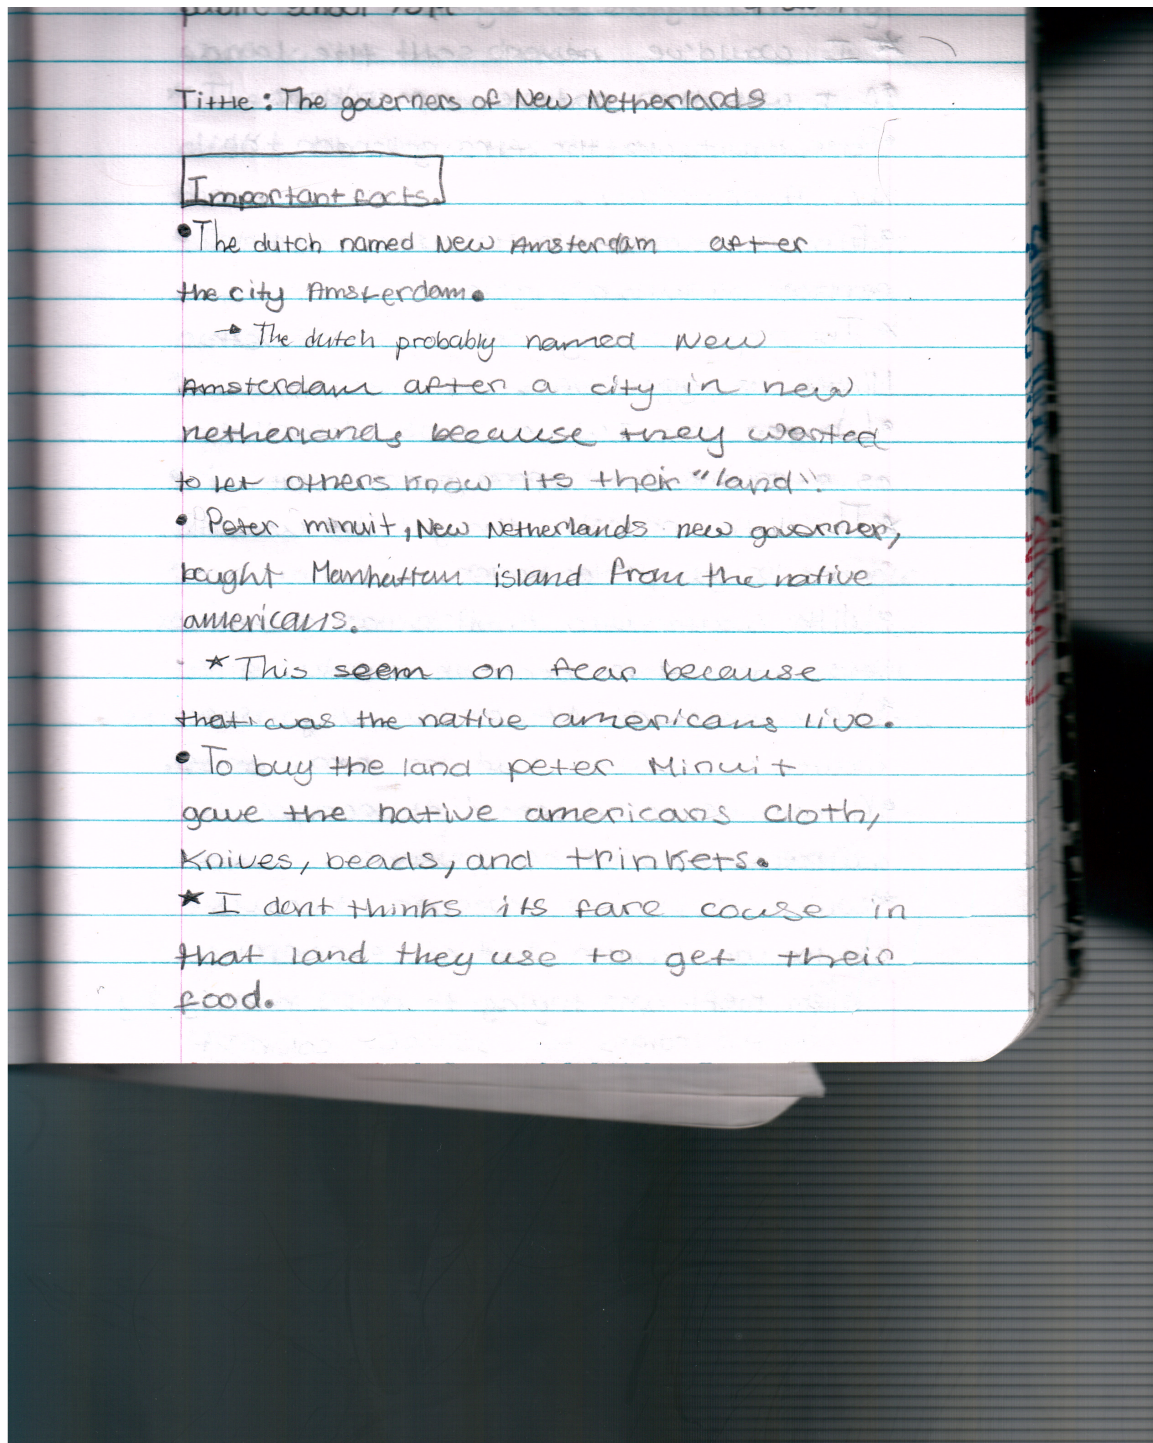 Tittle : The governers of New Netherlands
Important facts.
•The dutch named New Amsterdam after
the city Amsterdam.
→ The dutch probably named New
Amsterdam after a city in new
netherlands because they wanted
to let others know its their "land".
• Peter minuit, New Netherlands new governer,
bought Manhattan island from the native
americans.
★This seem on fear because
that was the native americans live.
•To buy the land peter Minuit
gave the native americans cloth,
knives, beads, and trinkets.
★I dont thinks its fare couse in
that land they use to get their
food.